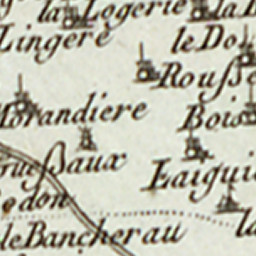 la Logerie
Lingere
le Do
Rouſſe
Morandiere
Bois
gueſſaux
Laigui
edon
le Bancherau
la